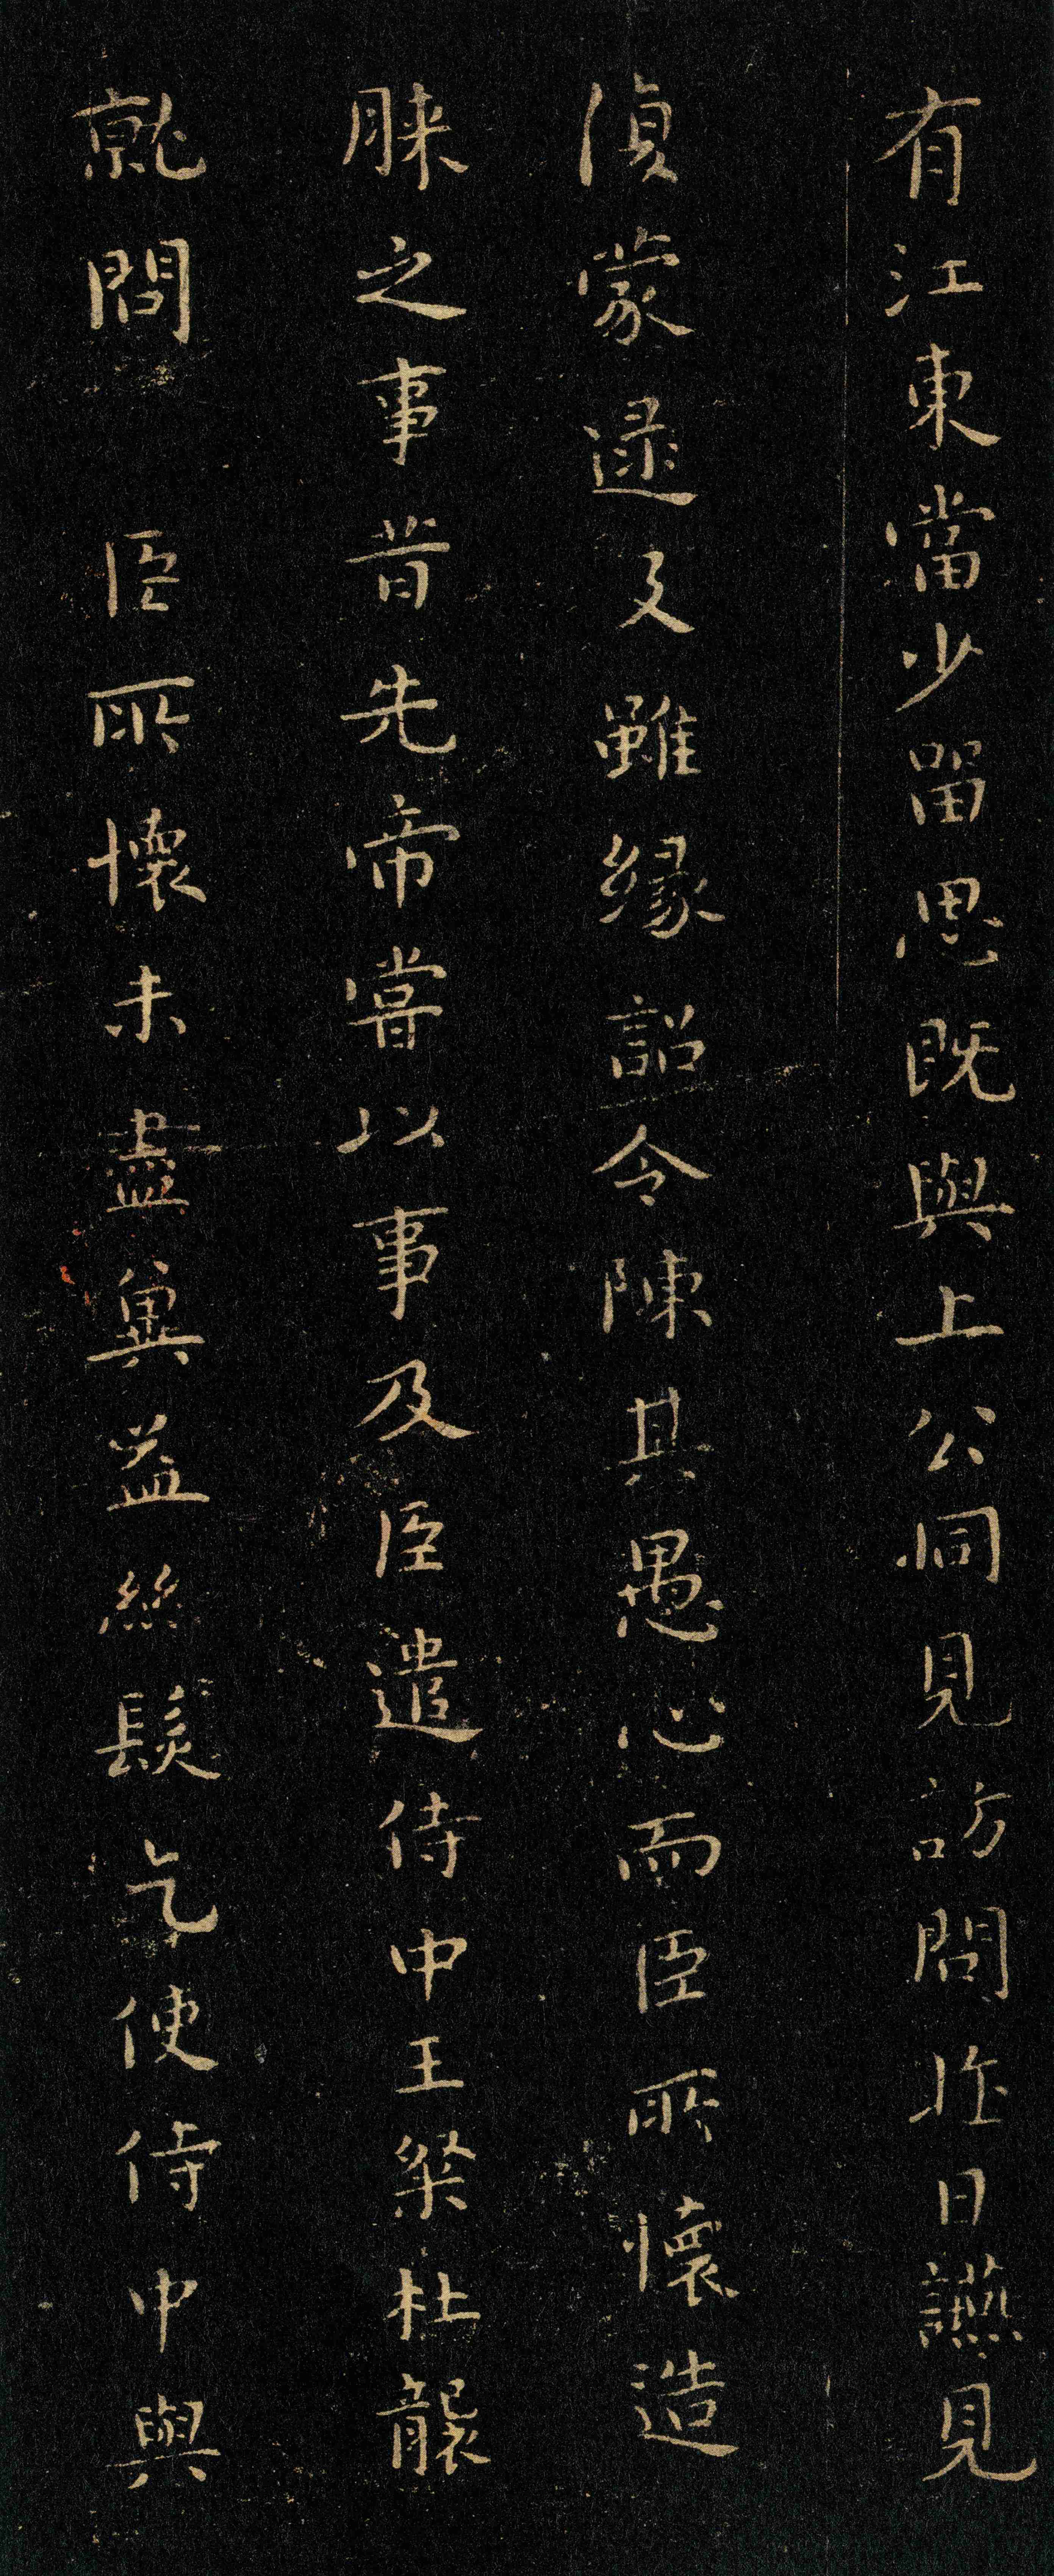 有江東當少留思既與上公同見訪問昨日讌見
須蒙逯及雖緣詔令陳其愚心而臣所懷造
膝之事昔先帝嘗以事及臣遣侍中王粲杜襲
就問臣所懷未盡兾益絲髮乞使侍中與